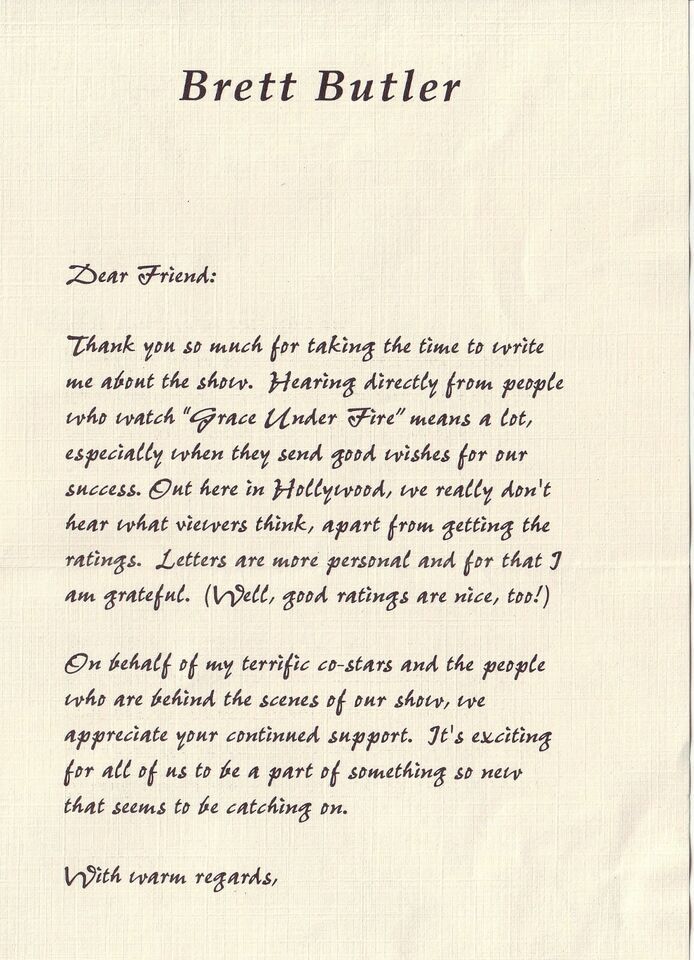 Brett Butler
Dear Friend:
Thank you so much for taking the time to write
me about the show. Hearing directly from people
who watch "Grace Under Fire" means a lot,
especially when they send good wishes for our
success. Out here in Hollywood, we really don't
hear what viewers think, apart from getting the
ratings. Letters are more personal and for that I
am grateful. (Well, good ratings are nice, too!)
On behalf of my terrific co-stars and the people
who are behind the scenes of our show, we
appreciate your continued support. It's exciting
for all of us to be a part of something so new
that seems to be catching on.
With warm regards,